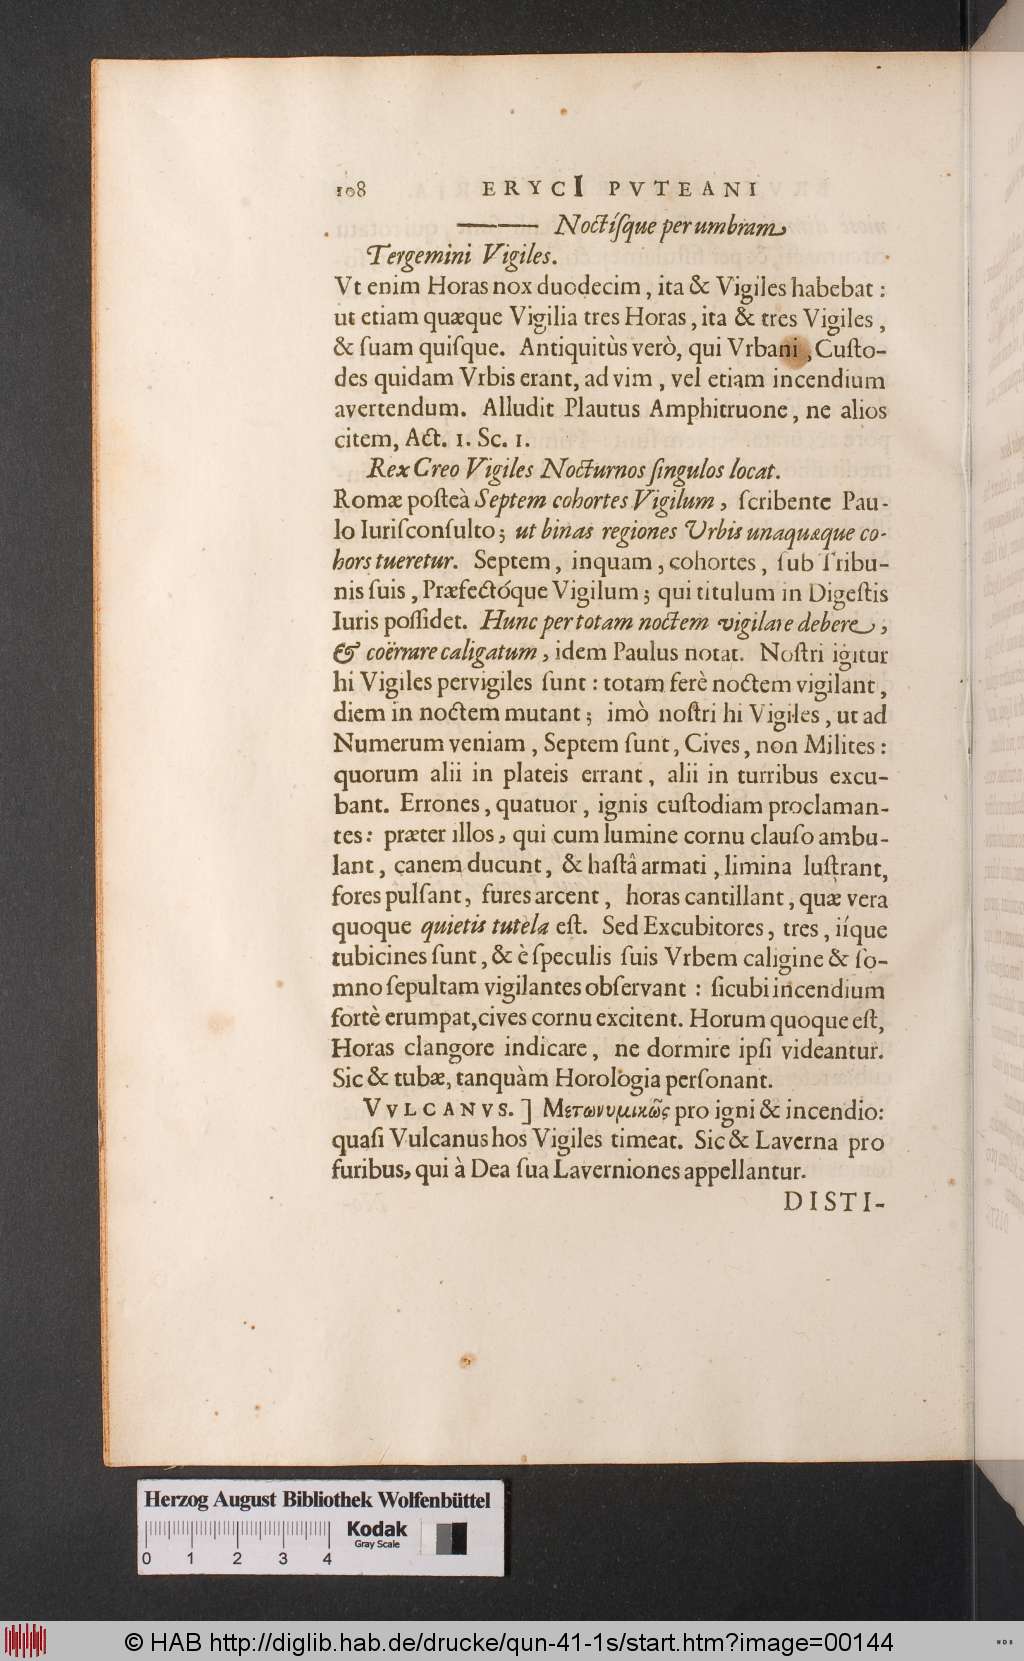 108 ERYCI PVTEANI
——— Noctísque per umbram
Tergemini Vigiles.
Vt enim Horas nox duodecim, ita & Vigiles habebat:
ut etiam quæque Vigilia tres Horas, ita & tres Vigiles,
& ſuam quiſque. Antiquitùs verò, qui Vrbani, Cuſto-
des quidam Vrbis erant, ad vim, vel etiam incendium
avertendum. Alludit Plautus Amphitruone, ne alios
citem, Act. 1. Sc. 1.
Rex Creo Vigiles Nocturnos ſingulos locat.
Romæ poſteà Septem cohortes Vigilum, ſcribente Pau-
lo Iuriſconſulto; ut binas regiones Urbis unaquæque co-
hors tueretur. Septem, inquam, cohortes, ſub Tribu-
nis ſuis, Præfectóque Vigilum; qui titulum in Digeſtis
Iuris poſſidet. Hunc per totam noctem vigilare debere,
& coërrare caligatum, idem Paulus notat. Noſtri igitur
hi Vigiles pervigiles ſunt: totam ferè noctem vigilant,
diem in noctem mutant; imò noſtri hi Vigiles, ut ad
Numerum veniam, Septem ſunt, Cives, non Milites:
quorum alii in plateis errant, alii in turribus excu-
bant. Errones, quatuor, ignis cuſtodiam proclaman-
tes: præter illos, qui cum lumine cornu clauſo ambu-
lant, canem ducunt, & haſtâ armati, limina luſtrant,
fores pulſant, fures arcent, horas cantillant, quæ vera
quoque quietis tutela eſt. Sed Excubitores, tres, iíque
tubicines ſunt, & è ſpeculis ſuis Vrbem caligine & ſo-
mno ſepultam vigilantes obſervant: ſicubi incendium
fortè erumpat, cives cornu excitent. Horum quoque eſt,
Horas clangore indicare, ne dormire ipſi videantur.
Sic & tubæ, tanquàm Horologia perſonant.
VVLCANVS.] Μετωνυμικῶς pro igni & incendio:
quaſi Vulcanus hos Vigiles timeat. Sic & Laverna pro
furibus, qui à Dea ſua Laverniones appellantur.
DISTI-
Herzog August Bibliothek Wolfenbüttel
Kodak
Gray Scale
0 1 2 3 4
© HAB http://diglib.hab.de/drucke/qun-41-1s/start.htm?image=00144
HAB